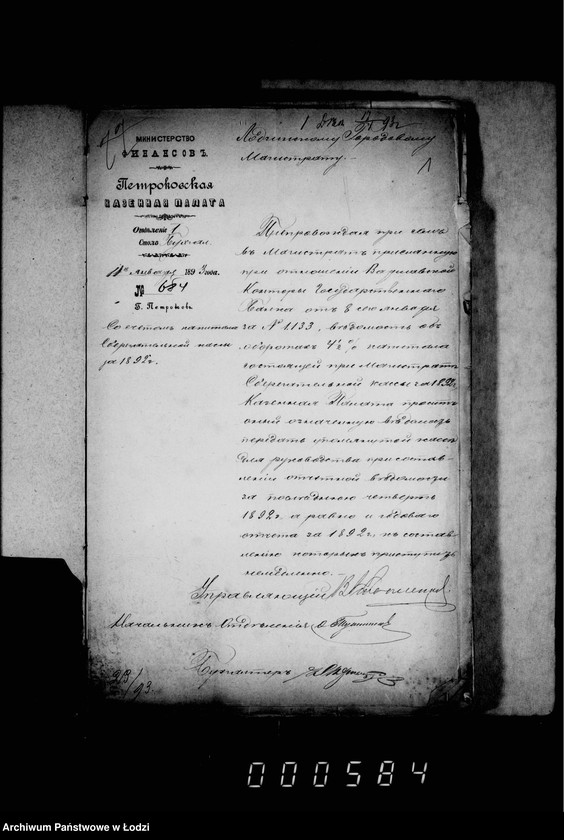 МИНИСТЕРСТВО
ФИНАНСОВЪ.
Петроковская
КАЗЕННАЯ ПАЛАТА
Отдѣленіе I
Стола
Января 1893 года.
№ 684
Г. Петроковъ.
Со счетомъ капитала
Сберегательной кассы
за 1892 г.
Лодзинскому Городовому
Магистрату.
Препровождая при семъ
въ Магистратъ присланную
при отношеніи Варшавской
Конторы Государственнаго
Банка отъ 8 сего января
за № 1133, вѣдомость объ
оборотахъ 4½ % капитала
состоящей при Магистратѣ
Сберегательной кассы за 1892 г.
Казенная Палата проситъ
оный означенную вѣдомость
передать упомянутой кассѣ
для руководства при состав-
леніи отчетной вѣдомости
за послѣднюю четверть
1892 г. а равно и годоваго
отчета за 1892 г. къ состав-
ленію которыхъ приступить
немедленно.
Управляющій
Начальникъ Отдѣленія
Бухгалтеръ
23/1 93.
000584
Archiwum Państwowe w Łodzi